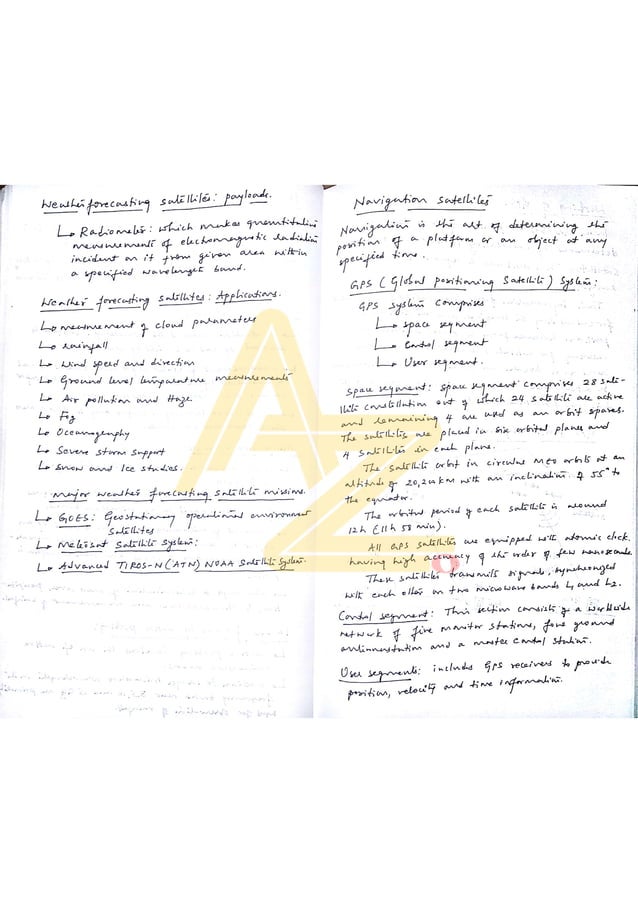 Weather forecasting satellites: payloads.
↳ Radiometer: which makes quantitative
measurements of electromagnetic radiation
incident on it from given area within
a specified wavelength band.
Weather forecasting satellites: Applications.
↳ measurement of cloud parameters
↳ rainfall
↳ Wind speed and direction
↳ Ground level temperature measurements
↳ Air pollution and Haze
↳ Fog
↳ Oceanography
↳ Severe storm support
↳ Snow and Ice studies.
Major weather forecasting satellite missions.
↳ GOES: Geostationary operational environment
Satellites
↳ Meteosat Satellite System:
↳ Advanced TIROS-N (ATN) NOAA Satellite System.
Navigation Satellites
Navigation is the art of determining the
position of a platform or an object at any
specified time.
GPS (Global positioning Satellite) System:
GPS system comprises
↳ space segment
↳ Control segment
↳ User segment.
Space segment: Space segment comprises 28 sate-
llite constellation out of which 24 satellite are active
and remaining 4 are used as an orbit spares.
The satellites are placed in six orbital planes and
4 Satellites in each plane.
The satellite orbit in circular MEO orbits at an
altitude of 20,200 KM with an inclination of 55° to
the equator.
The orbital period of each satellite is around
12h (11h 58 min).
All GPS satellites are equipped with atomic clock
having high accuracy of the order of few nanoseconds
These satellites transmits signals, synchronized
with each other on two microwave bands L1 and L2.
Control segment: This section consists of a worldwide
network of five monitor stations, four ground
antenna station and a master control station.
User segments: includes GPS receivers to provide
position, velocity and time information.
AZ